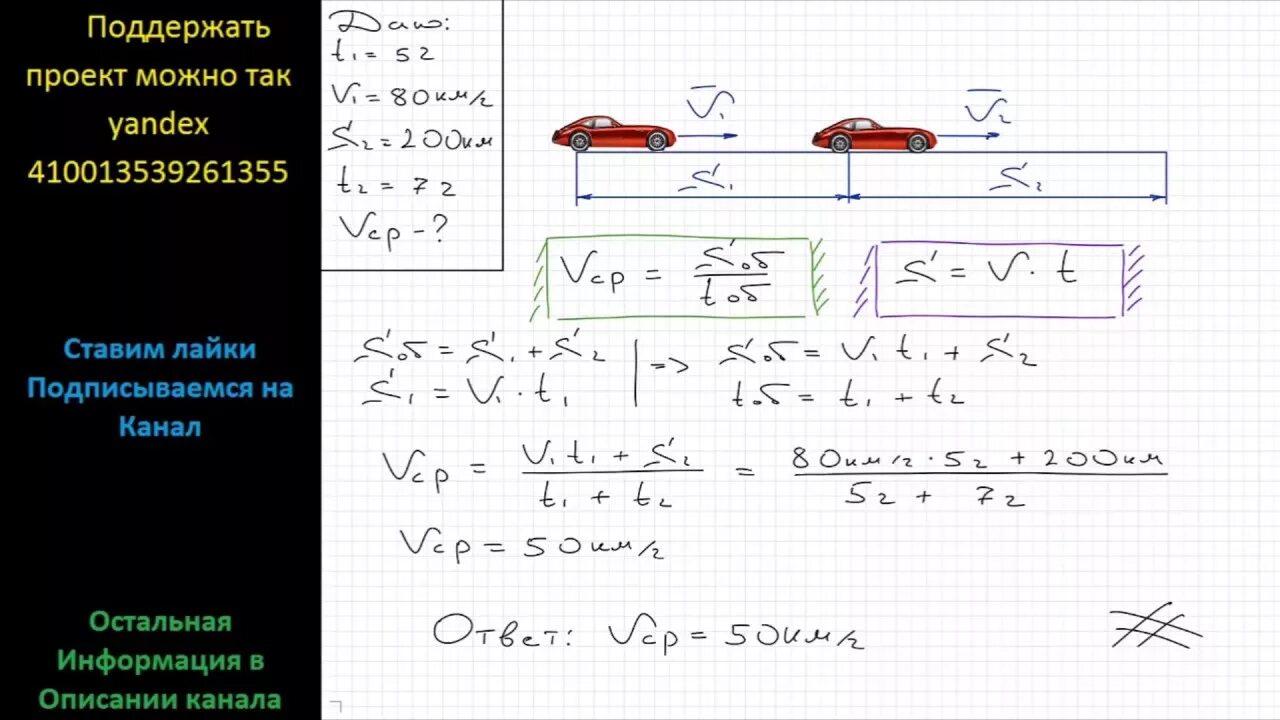 Поддержать
проект можно так
yandex
410013539261355
Ставим лайки
Подписываемся на
Канал
Остальная
Информация в
Описании канала
Дано:
t₁ = 5ч
V₁ = 80км/ч
S₂ = 200км
t₂ = 7ч
Vср - ?
V₁ V₂
S₁ S₂
Vср = Sоб / tоб
S = V · t
Sоб = S₁ + S₂ | => Sоб = V₁t₁ + S₂
S₁ = V₁ · t₁ | tоб = t₁ + t₂
Vср = (V₁t₁ + S₂) / (t₁ + t₂) = (80км/ч · 5ч + 200км) / (5ч + 7ч)
Vср = 50км/ч
Ответ: Vср = 50км/ч